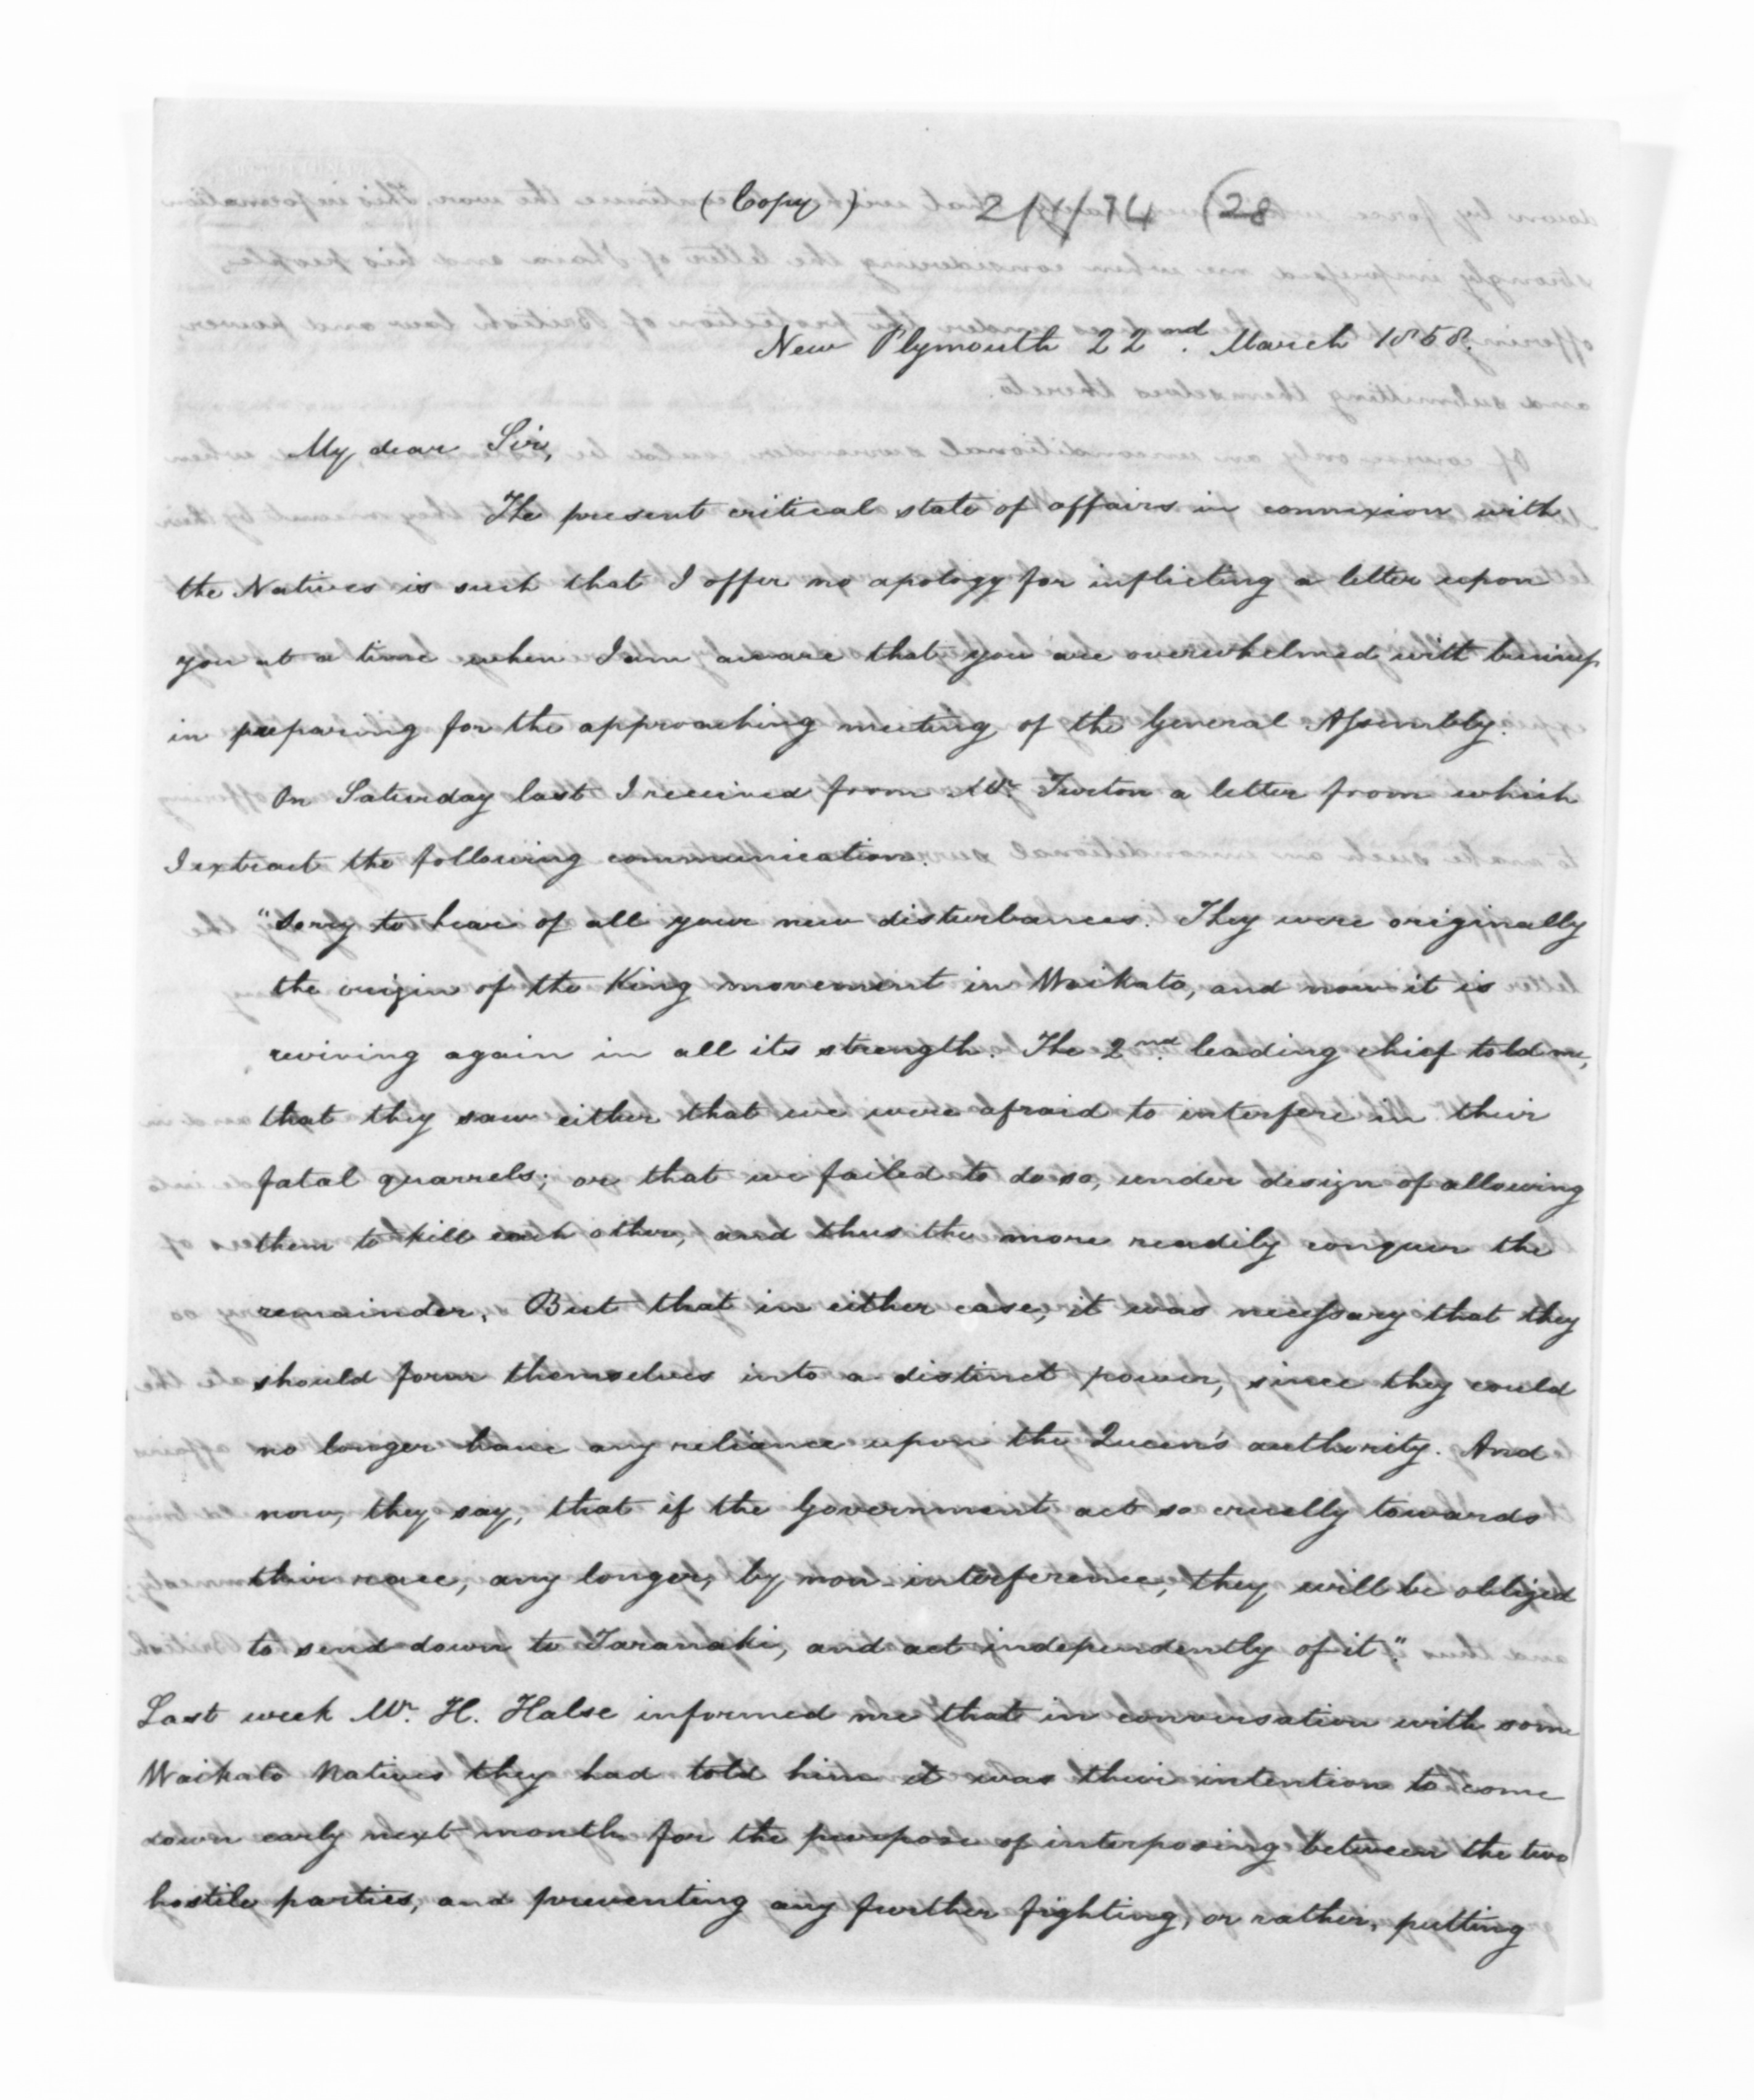 (Copy) 2/1/74 (28
New Plymouth 22nd. March 1858.
My dear Sir,
The present critical state of affairs in connexion with
the Natives is such that I offer no apology for inflicting a letter upon
you at a time when I am aware that you are overwhelmed with business
in preparing for the approaching meeting of the General Assembly.
On Saturday last I received from Mr. Turton a letter from which
I extract the following communication.
"Sorry to hear of all your new disturbances. They were originally
the origin of the King movement in Waikato, and now it is
reviving again in all its strength. The 2nd. leading chief told me,
that they saw either that we were afraid to interfere in their
fatal quarrels; or that we failed to do so, under design of allowing
them to kill each other, and thus the more readily conquer the
remainder. But that in either case, it was necessary that they
should form themselves into a distinct power, since they could
no longer have any reliance upon the Queen's authority. And
now, they say, that if the Government act so cruelly towards
their race, any longer, by non-interference, they will be obliged
to send down to Taranaki, and act independently of it."
Last week Mr. H. Halse informed me that in conversation with some
Waikato Natives they had told him it was their intention to come
down early next month for the purpose of interposing between the two
hostile parties, and preventing any further fighting, or rather, putting